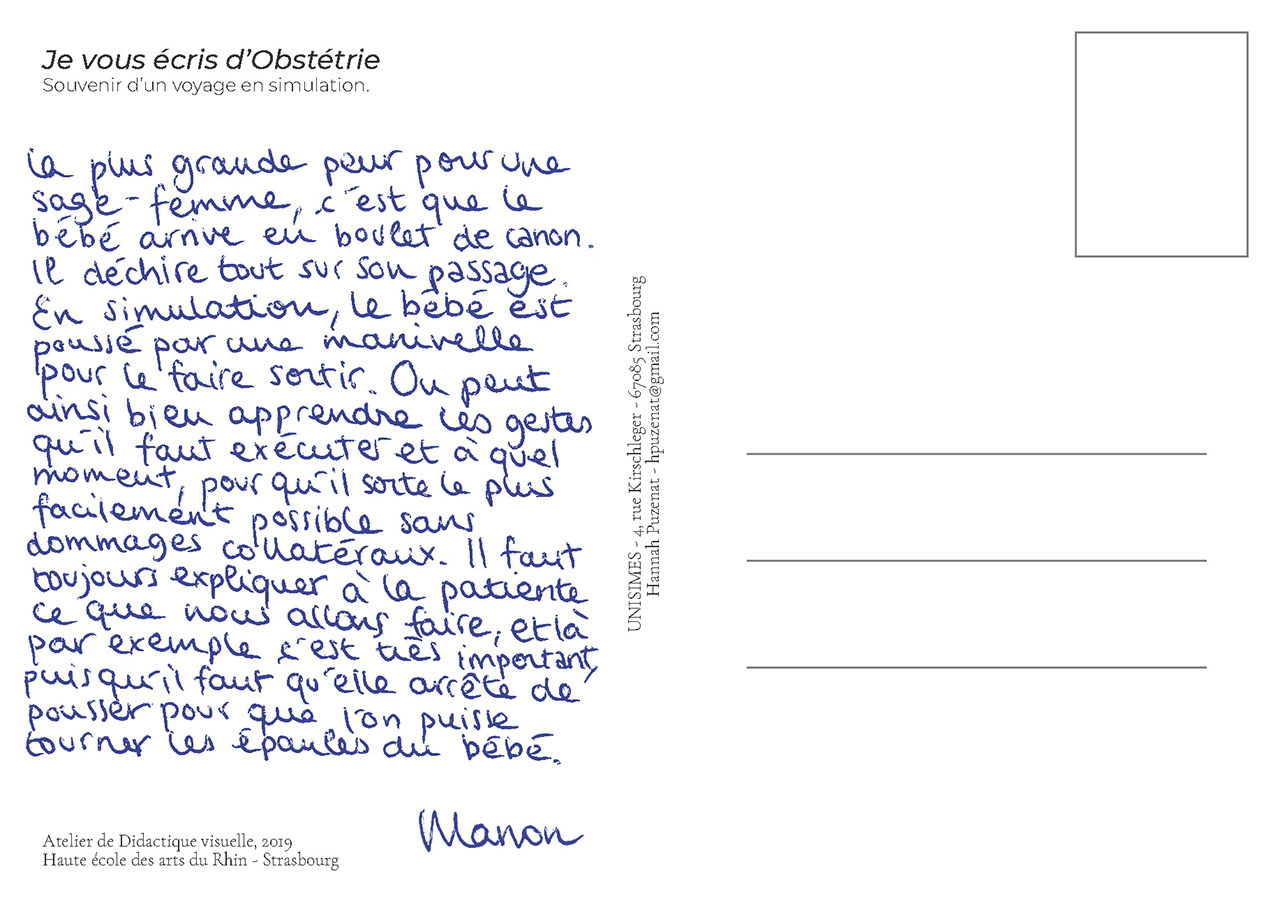 Je vous écris d'Obstétrie
Souvenir d'un voyage en simulation.
La plus grande peur pour une
sage-femme, c'est que le
bébé arrive en boulet de canon.
Il déchire tout sur son passage.
En simulation, le bébé est
poussé par une manivelle
pour le faire sortir. On peut
ainsi bien apprendre les gestes
qu'il faut exécuter et à quel
moment, pour qu'il sorte le plus
facilement possible sans
dommages collatéraux. Il faut
toujours expliquer à la patiente
ce que nous allons faire, et là
par exemple c'est très important,
puisqu'il faut qu'elle arrête de
pousser pour que l'on puisse
tourner les épaules du bébé.
Manon
Atelier de Didactique visuelle, 2019
Haute école des arts du Rhin - Strasbourg
UNISIMES - 4, rue Kirschleger - 67085 Strasbourg
Hannah Puzenat - hpuzenat@gmail.com